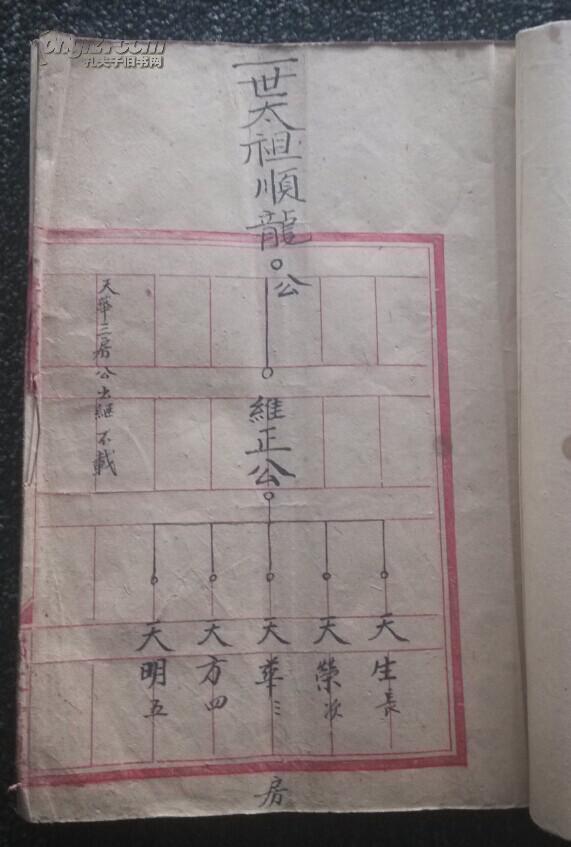 孔夫子旧书网
一世太祖順龍公
維正公
天生長
天榮次
天華三
天方四
天明五
房
天華三房公出繼不載